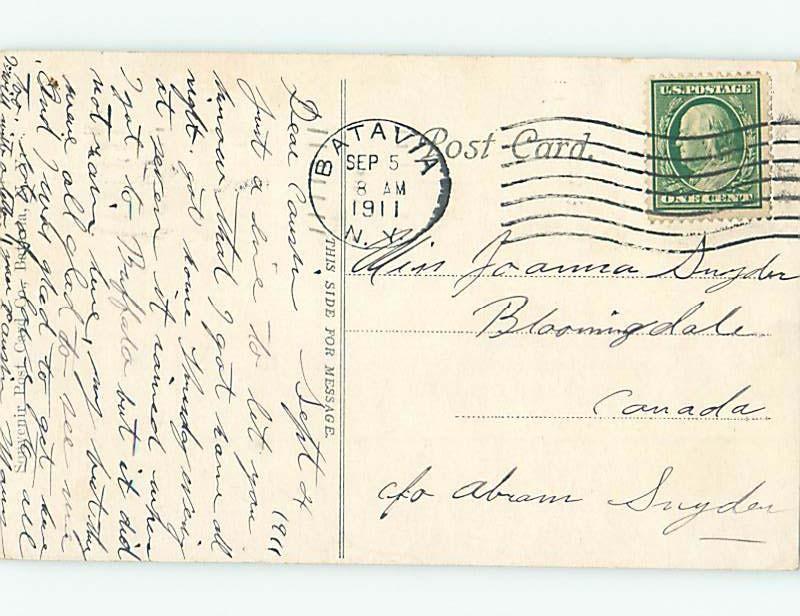 U.S. POSTAGE
ONE CENT
Post Card.
BATAVIA
SEP 5
8 AM
1911
N.Y.
THIS SIDE FOR MESSAGE.
Miss Joanna Snyder
Bloomingdale
Canada
c/o Abram Snyder
Sept 4 1911
Dear Cousin
Just a line to let you
know that I got home all
right got home Sunday evening
at seven it rained when
I got to Buffalo but it did
not rain here, my but they
were all glad to see me
And I was glad to get home
too. lots of love to all
Souvenir Post Card Co. Buffalo,